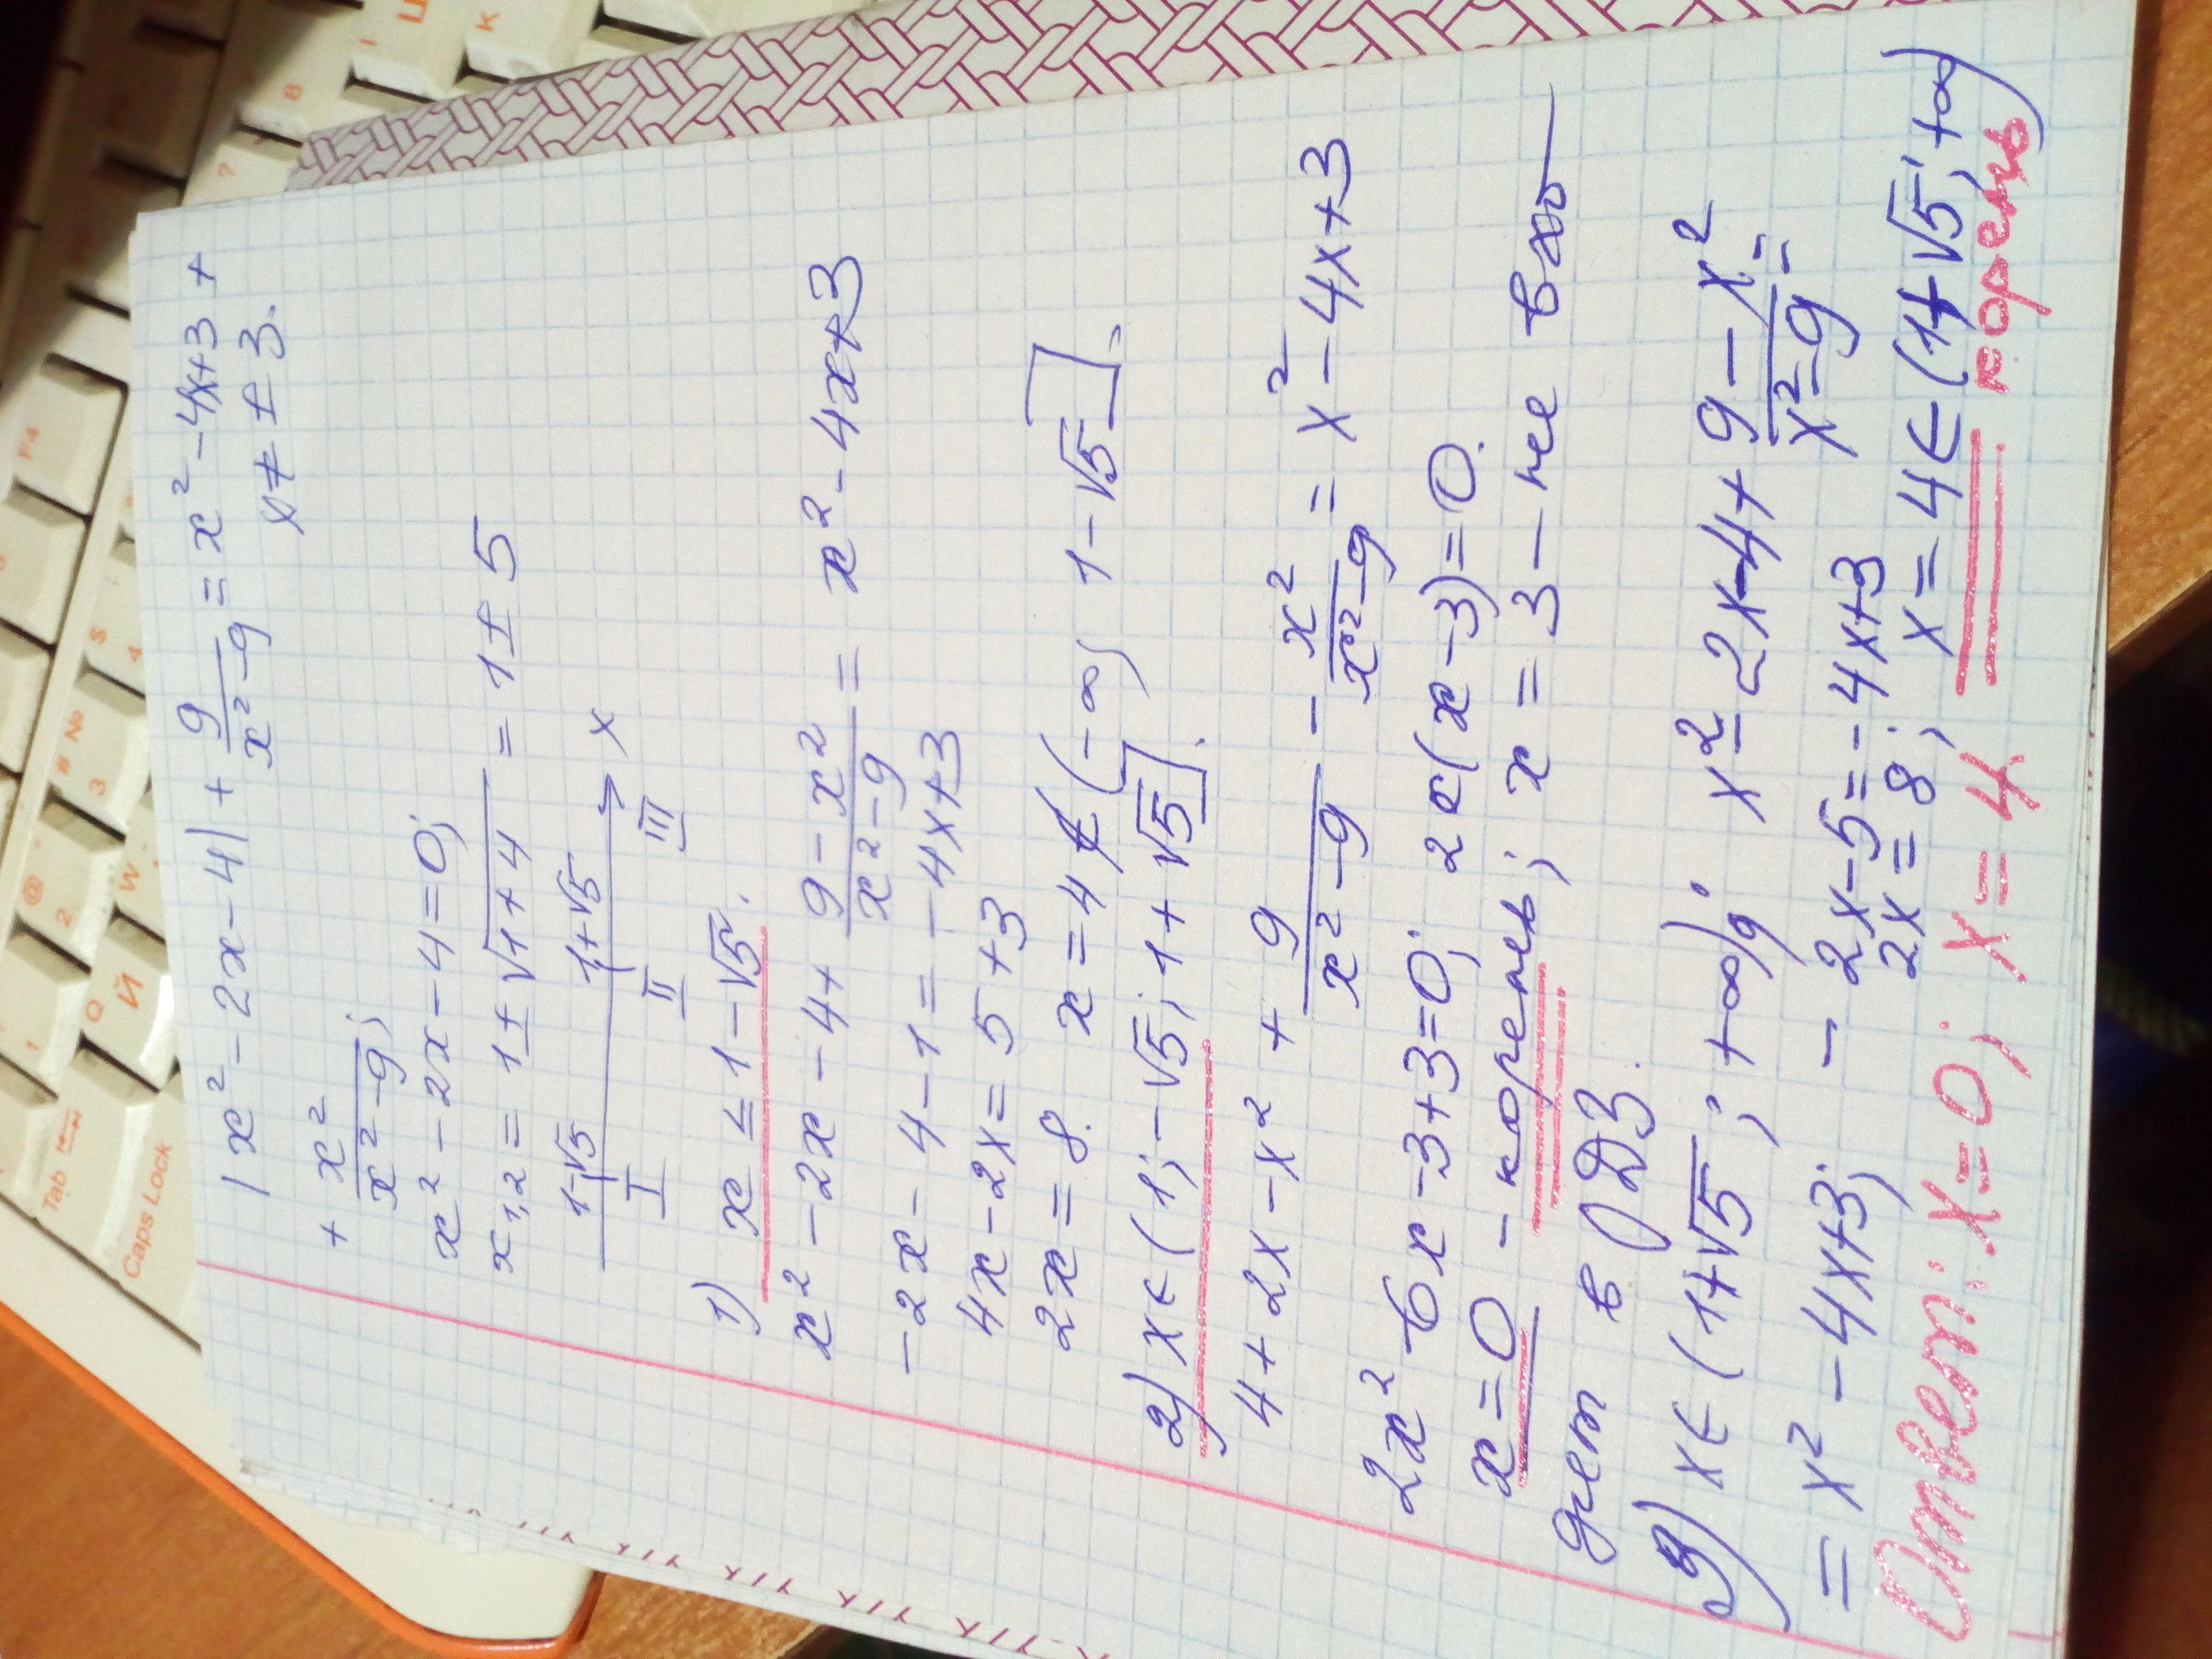 |x² - 2x - 4| + 9/(x² - 9) = x² - 4x + 3 +
+ x²/(x² - 9); x ≠ ± 3.
x² - 2x - 4 = 0;
x₁,₂ = 1 ± √(1 + 4) = 1 ± 5
1-√5 1+√5 x
I II III
1) x ≤ 1 - √5.
x² - 2x - 4 + (9 - x²)/(x² - 9) = x² - 4x + 3
-2x - 4 - 1 = -4x + 3
4x - 2x = 5 + 3
2x = 8. x = 4 ∉ (-∞; 1 - √5].
2) x ∈ (1; - √5; 1 + √5].
4 + 2x - x² + 9/(x² - 9) - x²/(x² - 9) = x² - 4x + 3
2x² - 6x - 3 + 3 = 0; 2x(x - 3) = 0.
x = 0 - корень; x = 3 - не вхо-
дит в ОДЗ.
3) x ∈ (1+√5; +∞); x² - 2x - 4 + (9 - x²)/(x² - 9) =
= x² - 4x + 3; - 2x - 5 = - 4x + 3
2x = 8; x = 4 ∈ (1+√5; +∞)
корень
Ответ: x = 0; x = 4
Tab
Caps Lock
Q
Й
W
1
2
@
3
#
№
4
$
F4
?
8
K